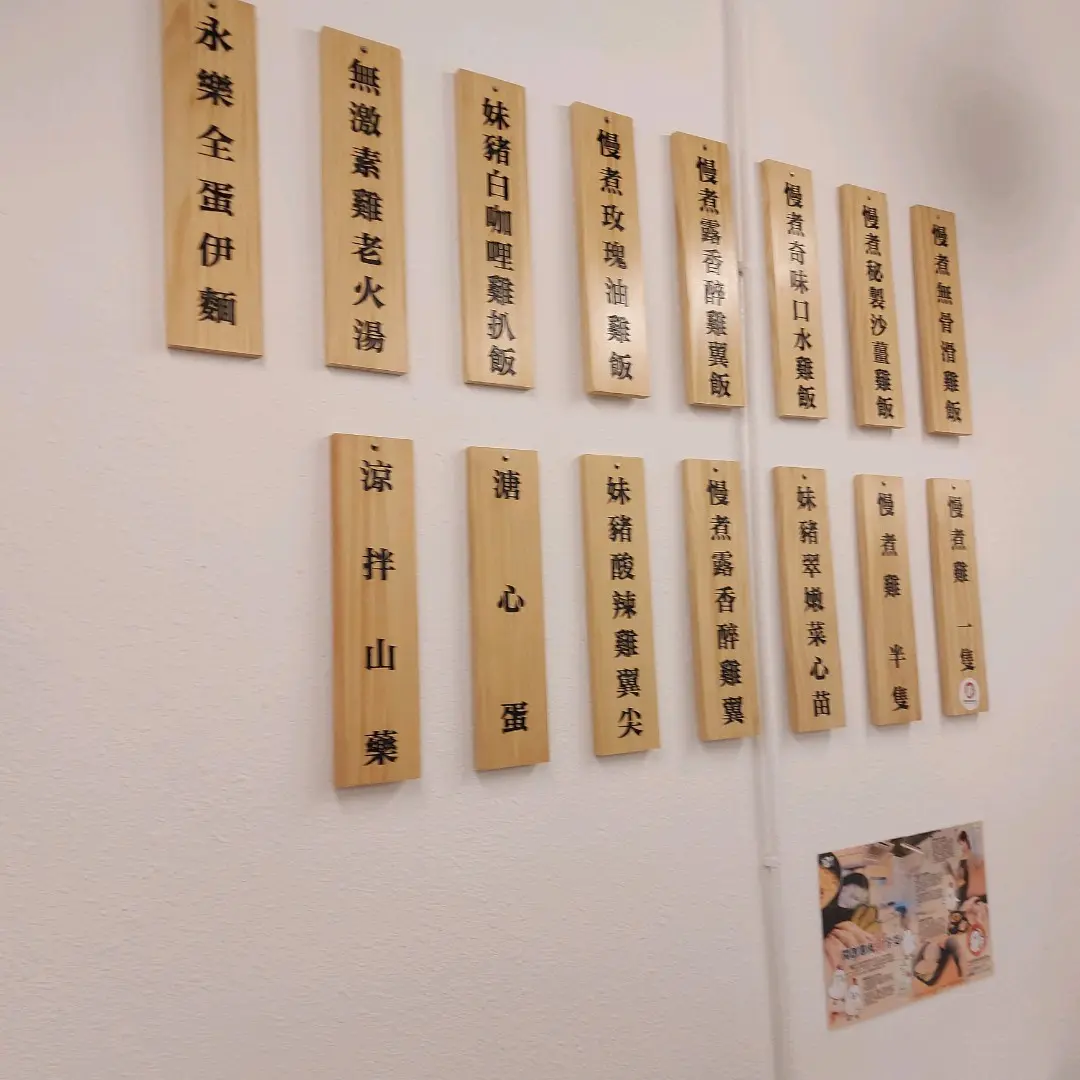 慢煮無骨滑雞飯
慢煮秘製沙薑雞飯
慢煮奇味口水雞飯
慢煮露香醉雞翼飯
慢煮玫瑰油雞飯
妹豬白咖哩雞扒飯
無激素雞老火湯
永樂全蛋伊麵
慢煮雞 一隻
慢煮雞 半隻
妹豬翠嫩菜心苗
慢煮露香醉雞翼
妹豬酸辣雞翼尖
溏心蛋
涼拌山藥